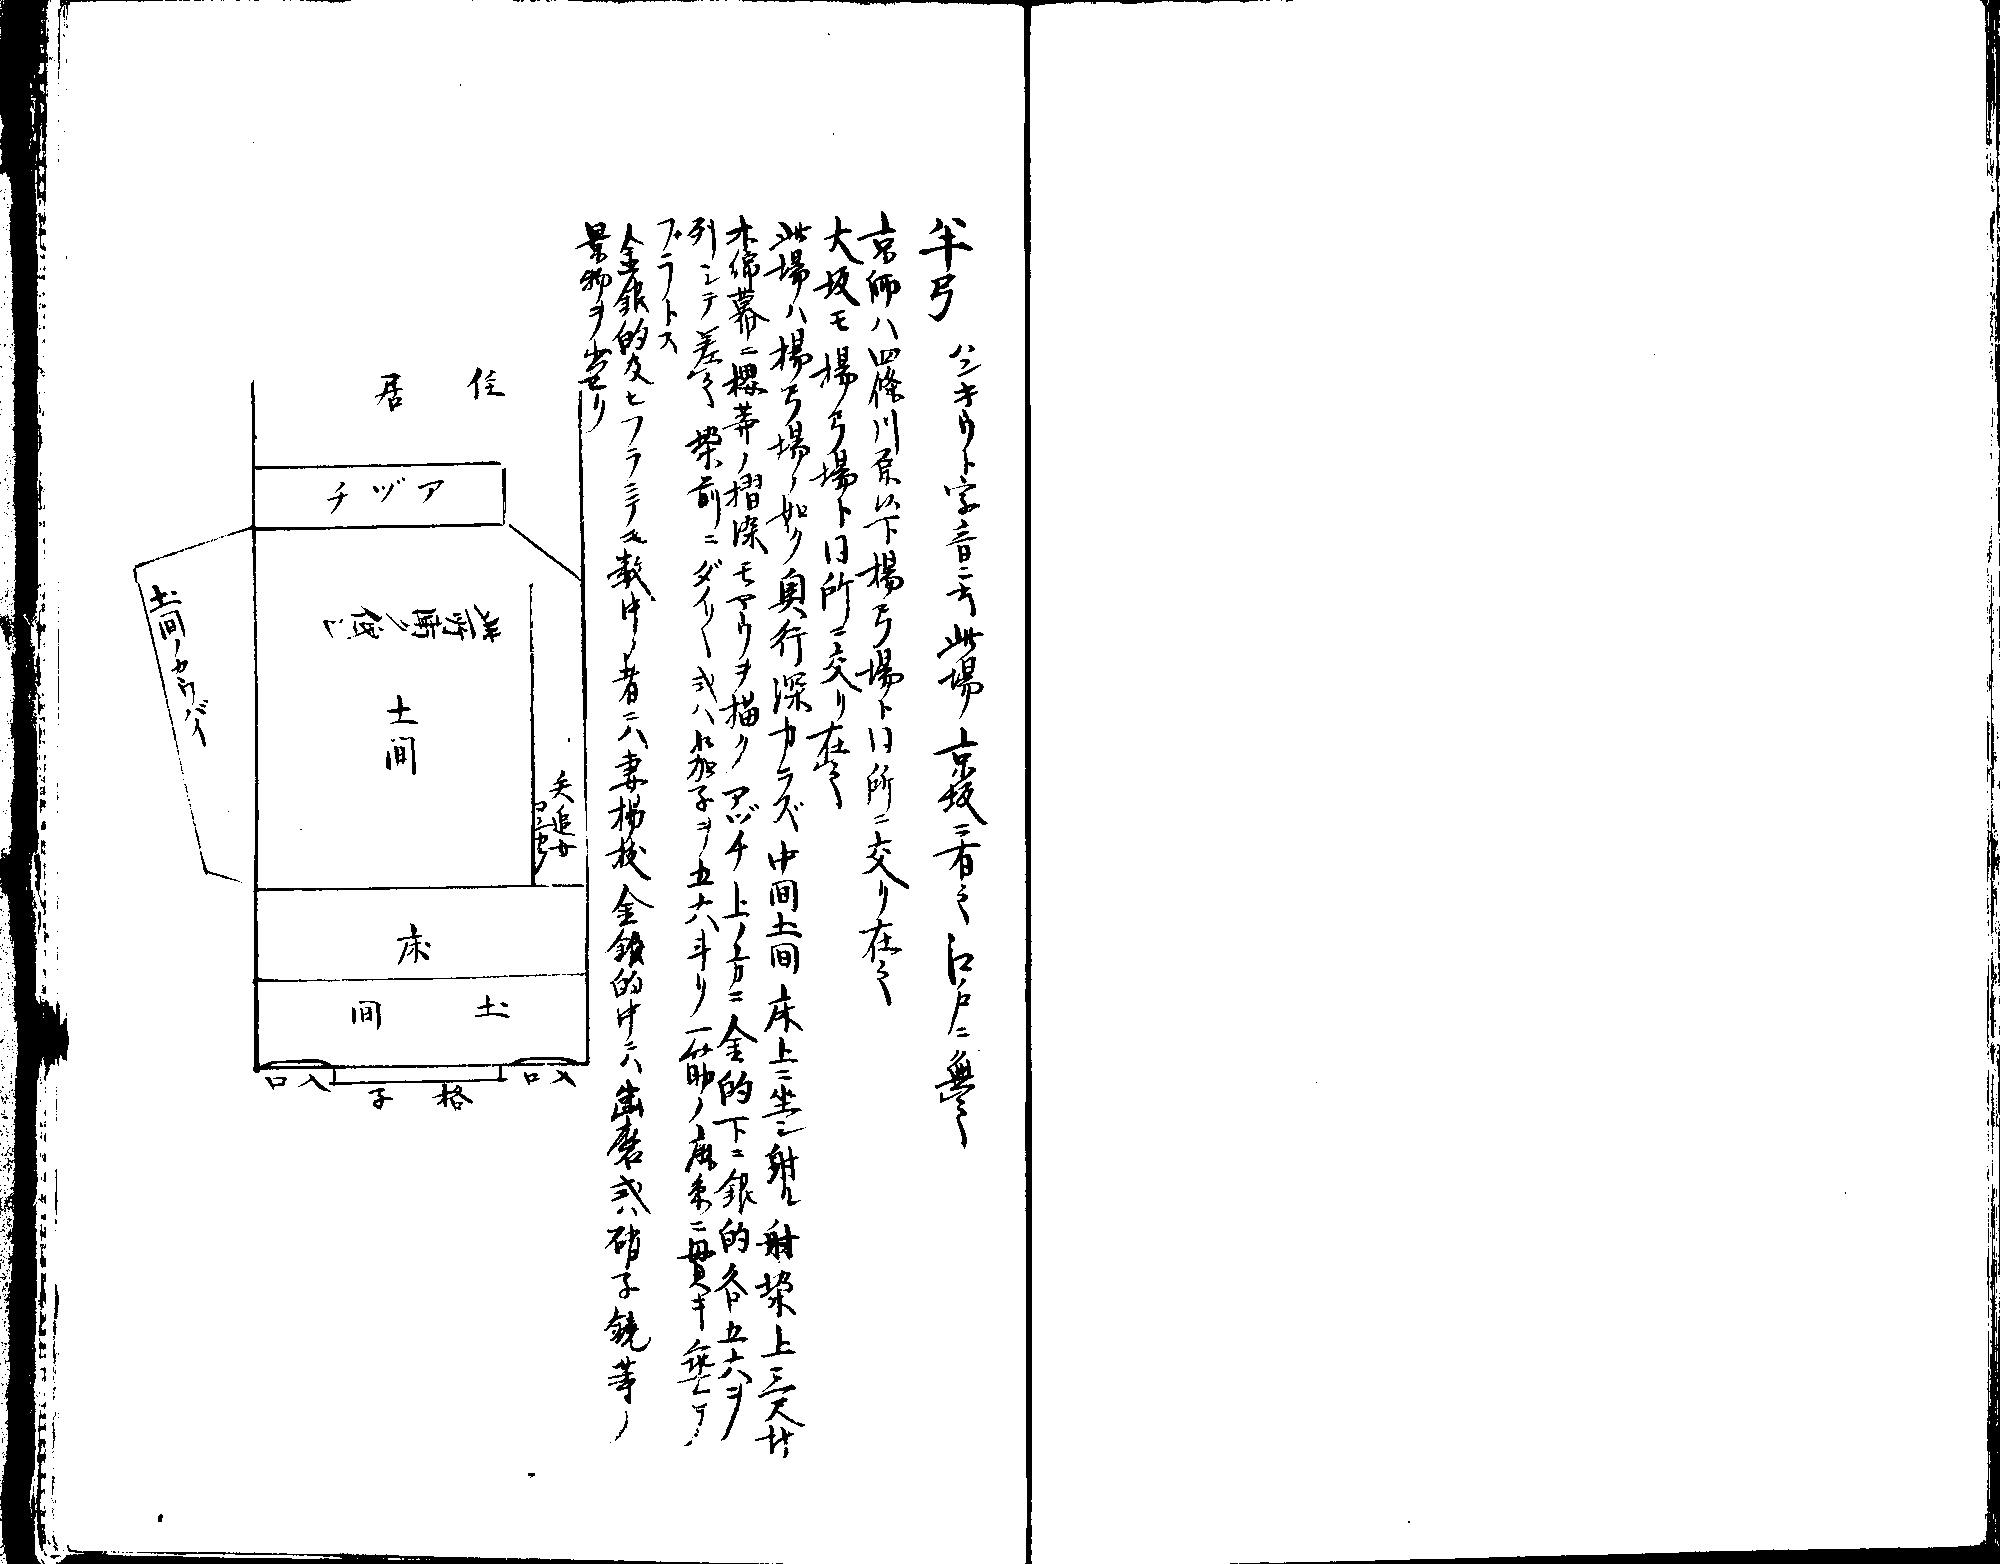 半弓　ハンキウト字音ニ云此場ノ京坂ニ有之江戸ニ無之
京師ハ四條川原以下楊弓場ト同所ニ交リ在之
大坂モ楊弓場ト同所ニ交リ在之
此場ハ楊弓場ノ如ク奥行深カラズ中間土間床上ニ坐シ射ル射垜上三尺廾
木綿幕ニ櫻等ノ摺染モヤウヲ描クアヅチ上ノ方ニ金的下ニ銀的各五六ヲ
列シテ釣之垜前ニダイ〳〵或ハ茄子ヲ五六斗リ一筋ノ麻糸ニ貫キ垂レテ
ブラトス
金銀的及ヒフラニテモ数中ノ者ニハ妻楊枝金銀的中ニハ歯磨或ハ硝子鏡等ノ
景物ヲ出セリ
住居
アヅチ
此所晴ノ儘
土間
土間ノカウバイ
矢追女
コヽニ出ル
床
土間
入口
格子
入口